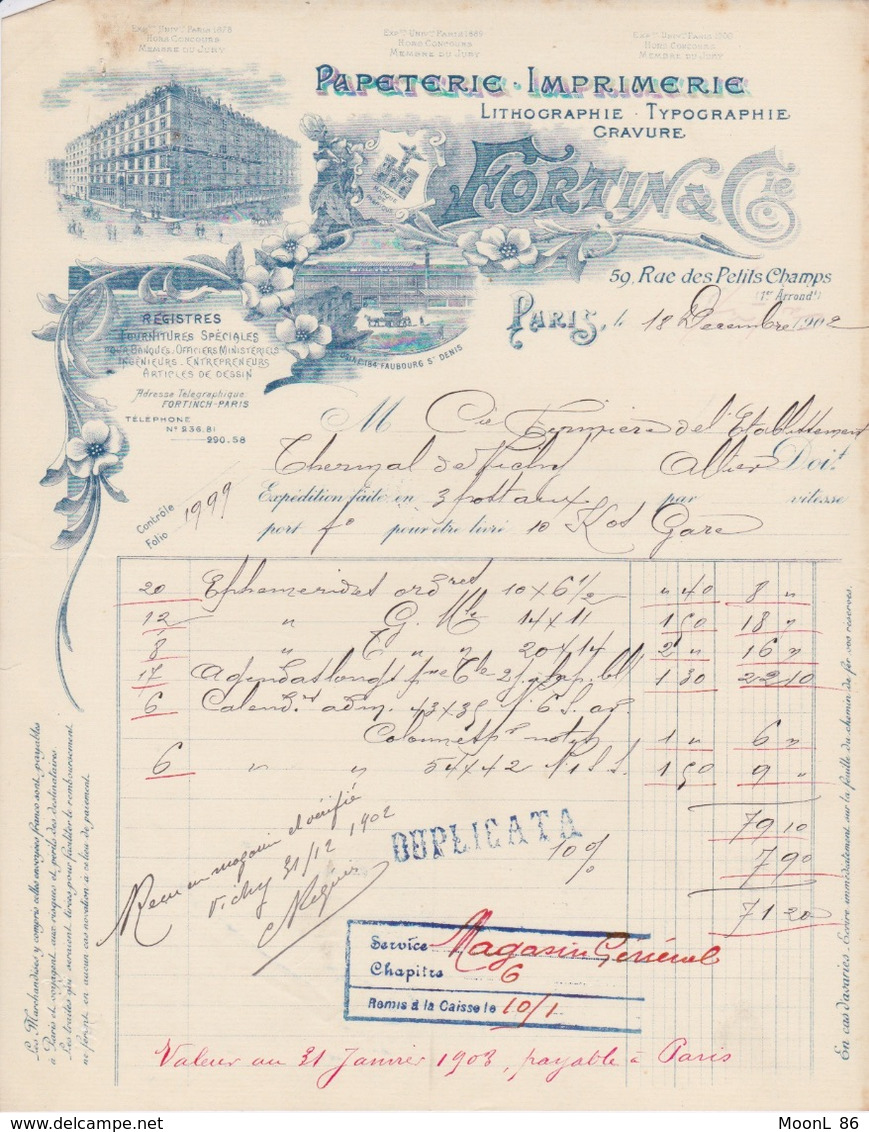 Expon Univlle Paris 1878
Hors Concours
Membre du Jury
Expon Univlle Paris 1889
Hors Concours
Membre du Jury
Expon Univlle Paris 1900
Hors Concours
Membre du Jury
Papeterie · Imprimerie
Lithographie · Typographie
Gravure
Fortin & Cie
59, Rue des Petits Champs
(1er Arrondt)
Paris, le 18 Decembre 1902
184 Faubourg St Denis
Registres
Fournitures Spéciales
pour Banques, Officiers Ministériels
Ingénieurs, Entrepreneurs
Articles de Dessin
Adresse Télégraphique
FORTINCH-PARIS
TÉLÉPHONE
No 236.81
290.58
M Cie Fermière de l'Etablittement
Thermal de Vichy Allier Doit
Expédition faite en 3 postaux par vitesse
port fo pour être livré 10 Kos Gare
Contrôle
Folio 1999
20 Ephemerides ordres 10 x 6 1/2 " 40 8 "
12 " G. Mle 14 x 11 1 50 18 "
8 " " " 20 x 14 2 " 16 "
17 Agendas longs 1 30 22 10
6 Calendrs adm. 43 x 35 No 6
Colonnes pr notes 1 " 6 "
6 " " 54 x 42 1 50 9 "
79 10
10 % 7 90
71 20
DUPLICATA
Recu en magasin et vérifié
Vichy 31/12 1902
Service Magasin Général
Chapitre 6
Remis à la Caisse le 10/1
Valeur au 31 Janvier 1903, payable à Paris
Les Marchandises y compris celles envoyées franco sont payables
à Paris et voyagent aux risques et périls des destinataires.
Les traites qui seraient tirées pour faciliter le remboursement
ne feront en aucun cas novation à ce lieu de paiement.
En cas d'avaries, Ecrire immédiatement sur la feuille du chemin de fer vos réserves.
MoonL 86